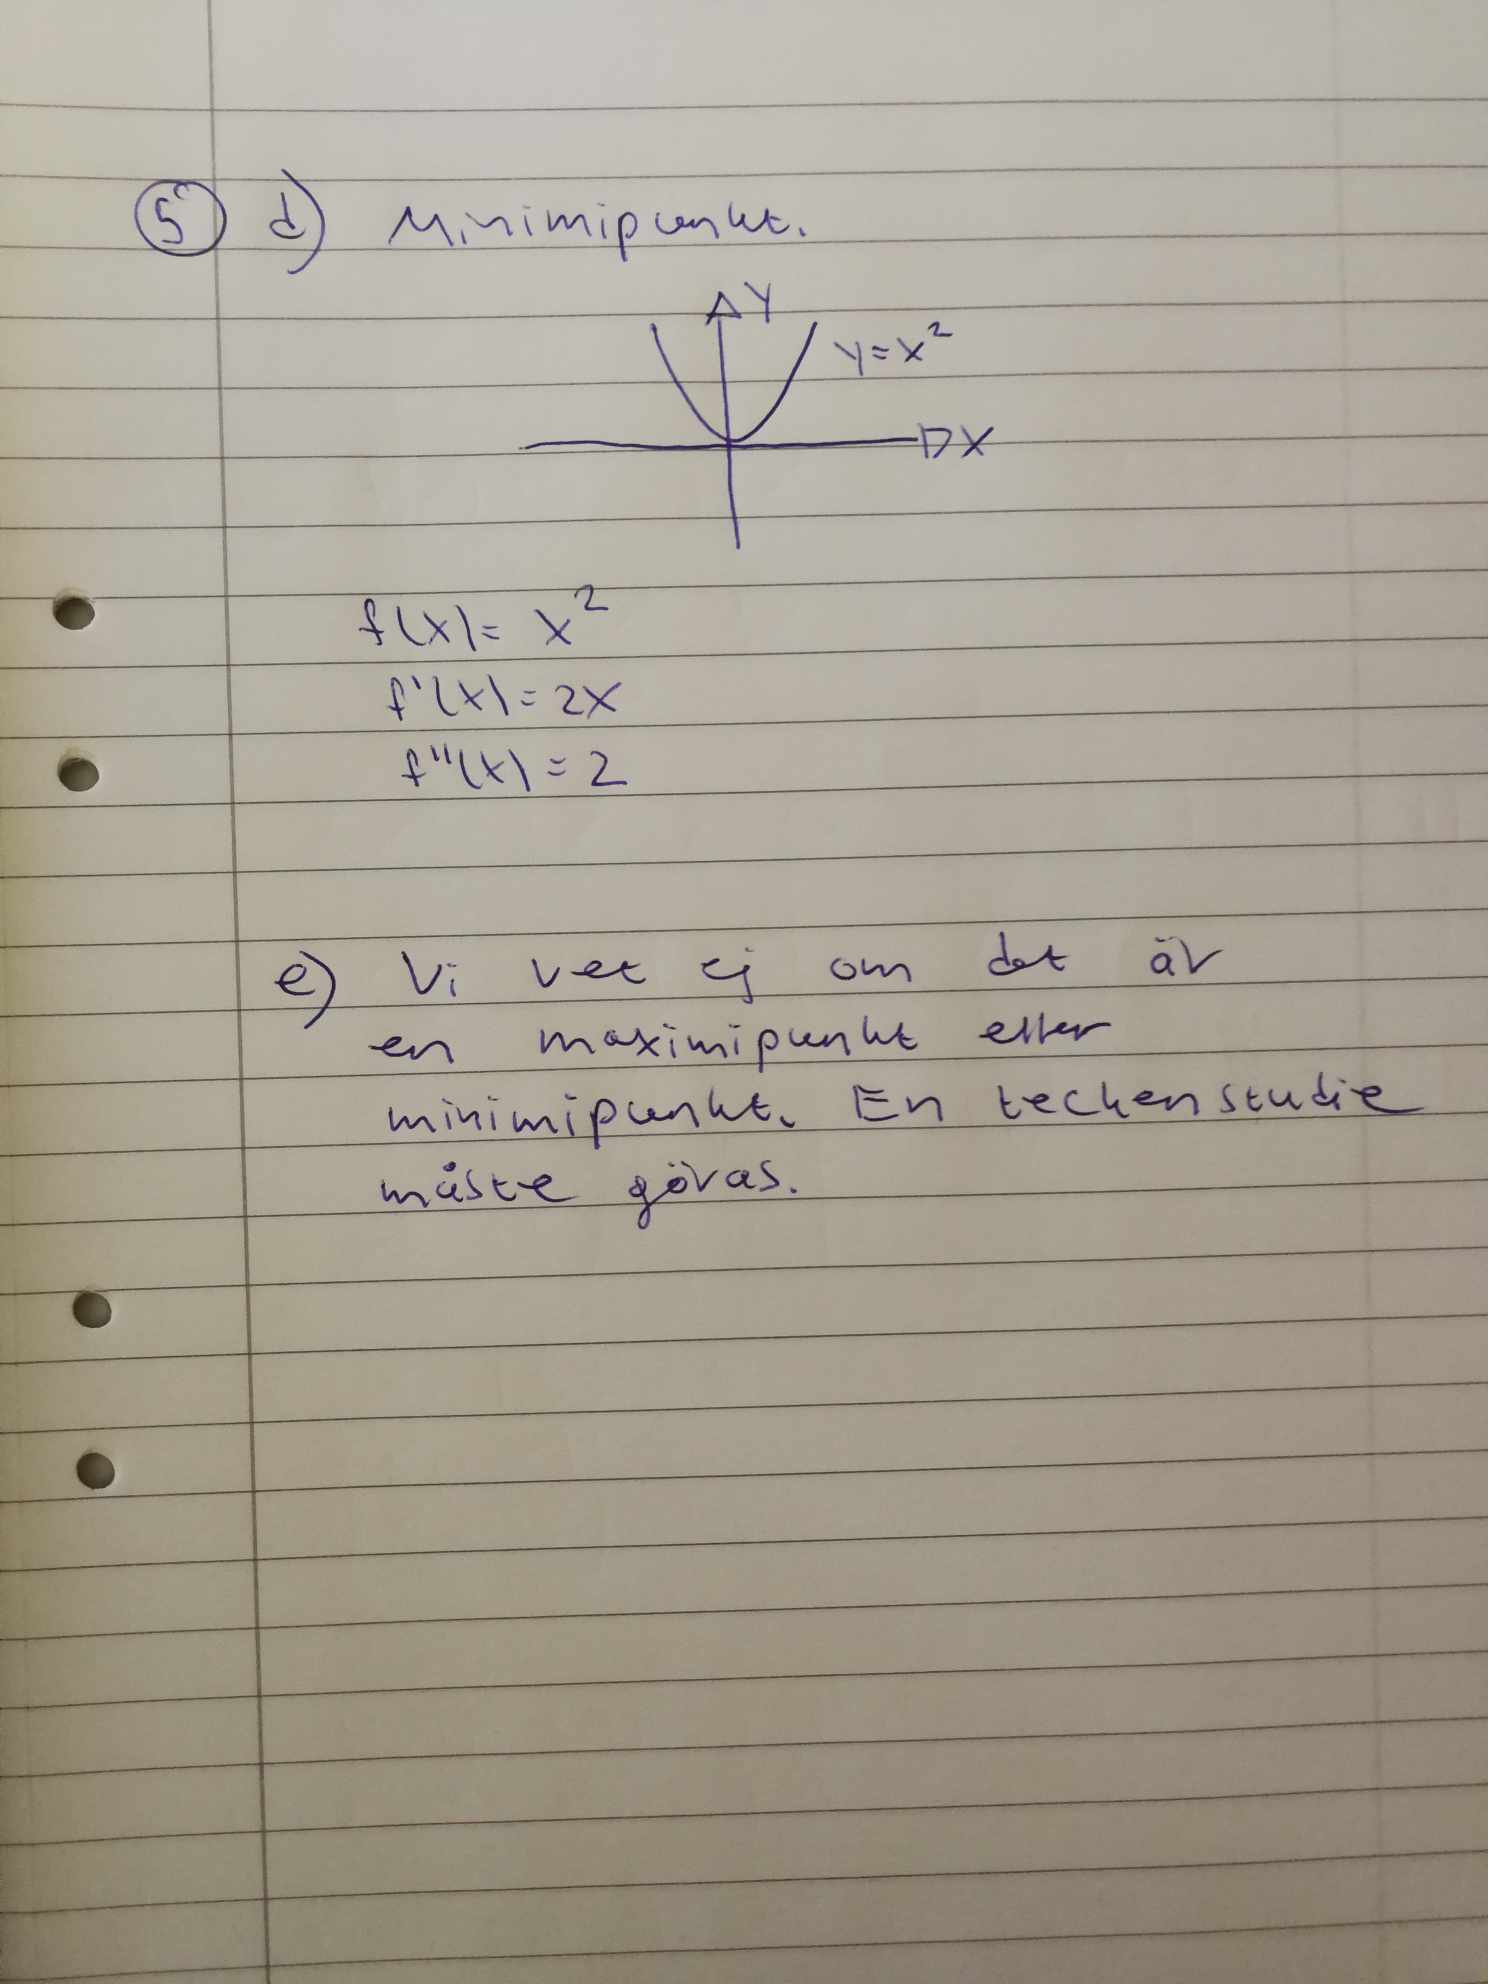 5 d) Minimipunkt.
Y
y=x²
X
f(x)= x²
f'(x)=2x
f''(x)=2
e) Vi vet ej om det är
en maximipunkt eller
minimipunkt. En teckenstudie
måste göras.